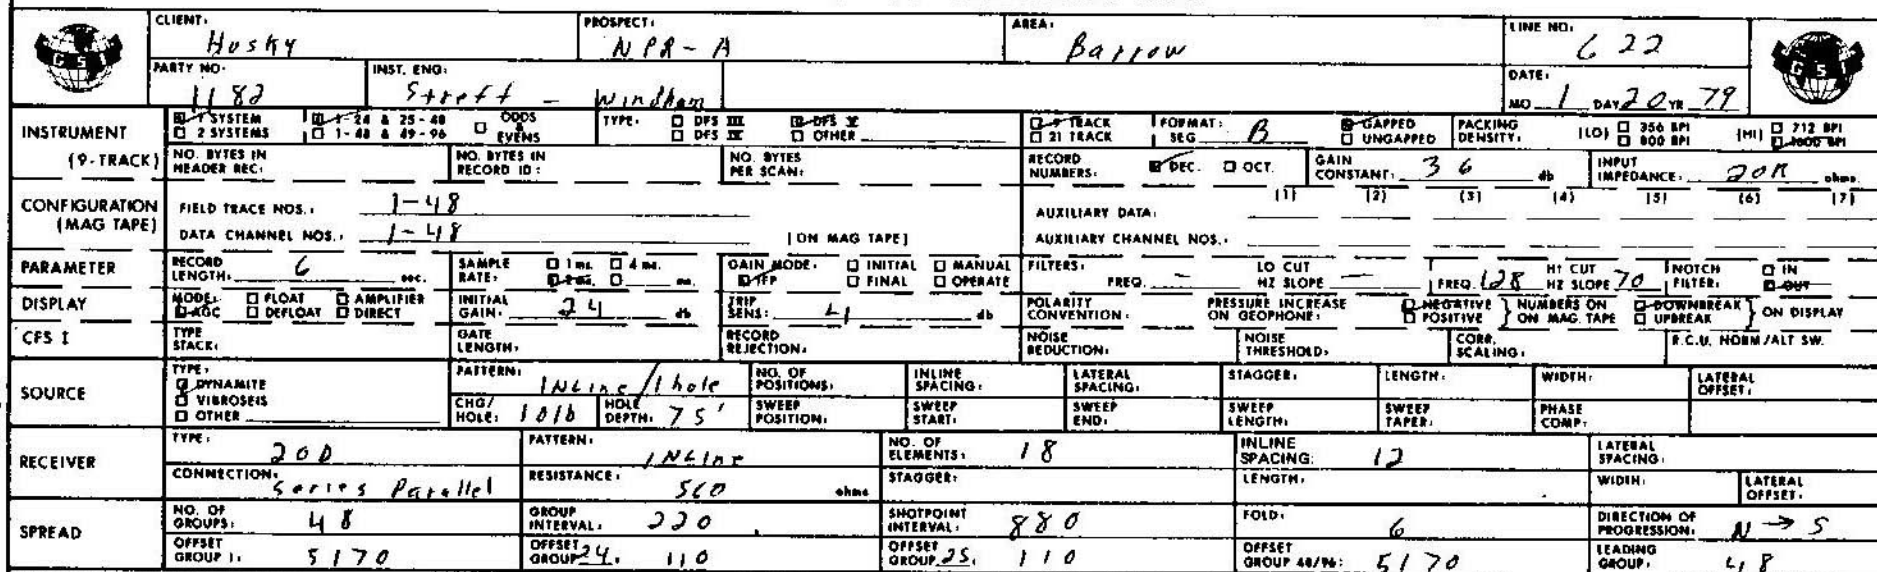 CLIENT: Husky PROSPECT: NPR-A AREA: Barrow LINE NO: 622
GSI
PARTY NO. 1182 INST. ENG: Streff - Windham DATE: MO 1 DAY 20 YR 79
GSI
INSTRUMENT (9-TRACK)
1 SYSTEM 1-24 & 25-48 ODDS & EVENS TYPE: DFS III DFS V 9 TRACK FORMAT: GAPPED PACKING DENSITY: (LO) 356 BPI (HI) 712 BPI
2 SYSTEMS 1-48 & 49-96 DFS IV OTHER 21 TRACK SEG B UNGAPPED 800 BPI 1600 BPI
NO. BYTES IN HEADER REC: NO. BYTES IN RECORD ID: NO. BYTES PER SCAN: RECORD NUMBERS: DEC. OCT. GAIN CONSTANT: 36 db INPUT IMPEDANCE: 20K ohms.
CONFIGURATION (MAG TAPE)
FIELD TRACE NOS.: 1-48 AUXILIARY DATA: (1) (2) (3) (4) (5) (6) (7)
DATA CHANNEL NOS.: 1-48 [ON MAG TAPE] AUXILIARY CHANNEL NOS.:
PARAMETER RECORD LENGTH: 6 sec. SAMPLE RATE: 1 ms. 4 ms. 2 ms. ms. GAIN MODE: INITIAL MANUAL IFP FINAL OPERATE FILTERS: FREQ. — LO CUT HZ SLOPE — FREQ. 128 HI CUT HZ SLOPE 70 NOTCH FILTER: IN OUT
DISPLAY MODE: FLOAT AMPLIFIER AGC DEFLOAT DIRECT INITIAL GAIN: 24 db TRIP SENS: 4 db POLARITY CONVENTION: PRESSURE INCREASE ON GEOPHONE: NEGATIVE POSITIVE } NUMBERS ON MAG. TAPE DOWNBREAK UPBREAK } ON DISPLAY
CFS I TYPE STACK: GATE LENGTH: RECORD REJECTION: NOISE REDUCTION: NOISE THRESHOLD: CORR. SCALING: R.C.U. NORM/ALT SW.
SOURCE TYPE: DYNAMITE VIBROSEIS OTHER
PATTERN: INLine/1 hole NO. OF POSITIONS: INLINE SPACING: LATERAL SPACING: STAGGER: LENGTH: WIDTH: LATERAL OFFSET:
CHG/HOLE: 10lb HOLE DEPTH: 75' SWEEP POSITION: SWEEP START: SWEEP END: SWEEP LENGTH: SWEEP TAPER: PHASE COMP:
RECEIVER TYPE: 20D PATTERN: INLine NO. OF ELEMENTS: 18 INLINE SPACING: 12 LATERAL SPACING:
CONNECTION: Series Parallel RESISTANCE: 560 ohms STAGGER: LENGTH: WIDTH: LATERAL OFFSET:
SPREAD NO. OF GROUPS: 48 GROUP INTERVAL: 220 SHOTPOINT INTERVAL: 880 FOLD: 6 DIRECTION OF PROGRESSION: N → S
OFFSET GROUP 1: 5170 OFFSET GROUP 24: 110 OFFSET GROUP 25: 110 OFFSET GROUP 48/96: 5170 LEADING GROUP: 48